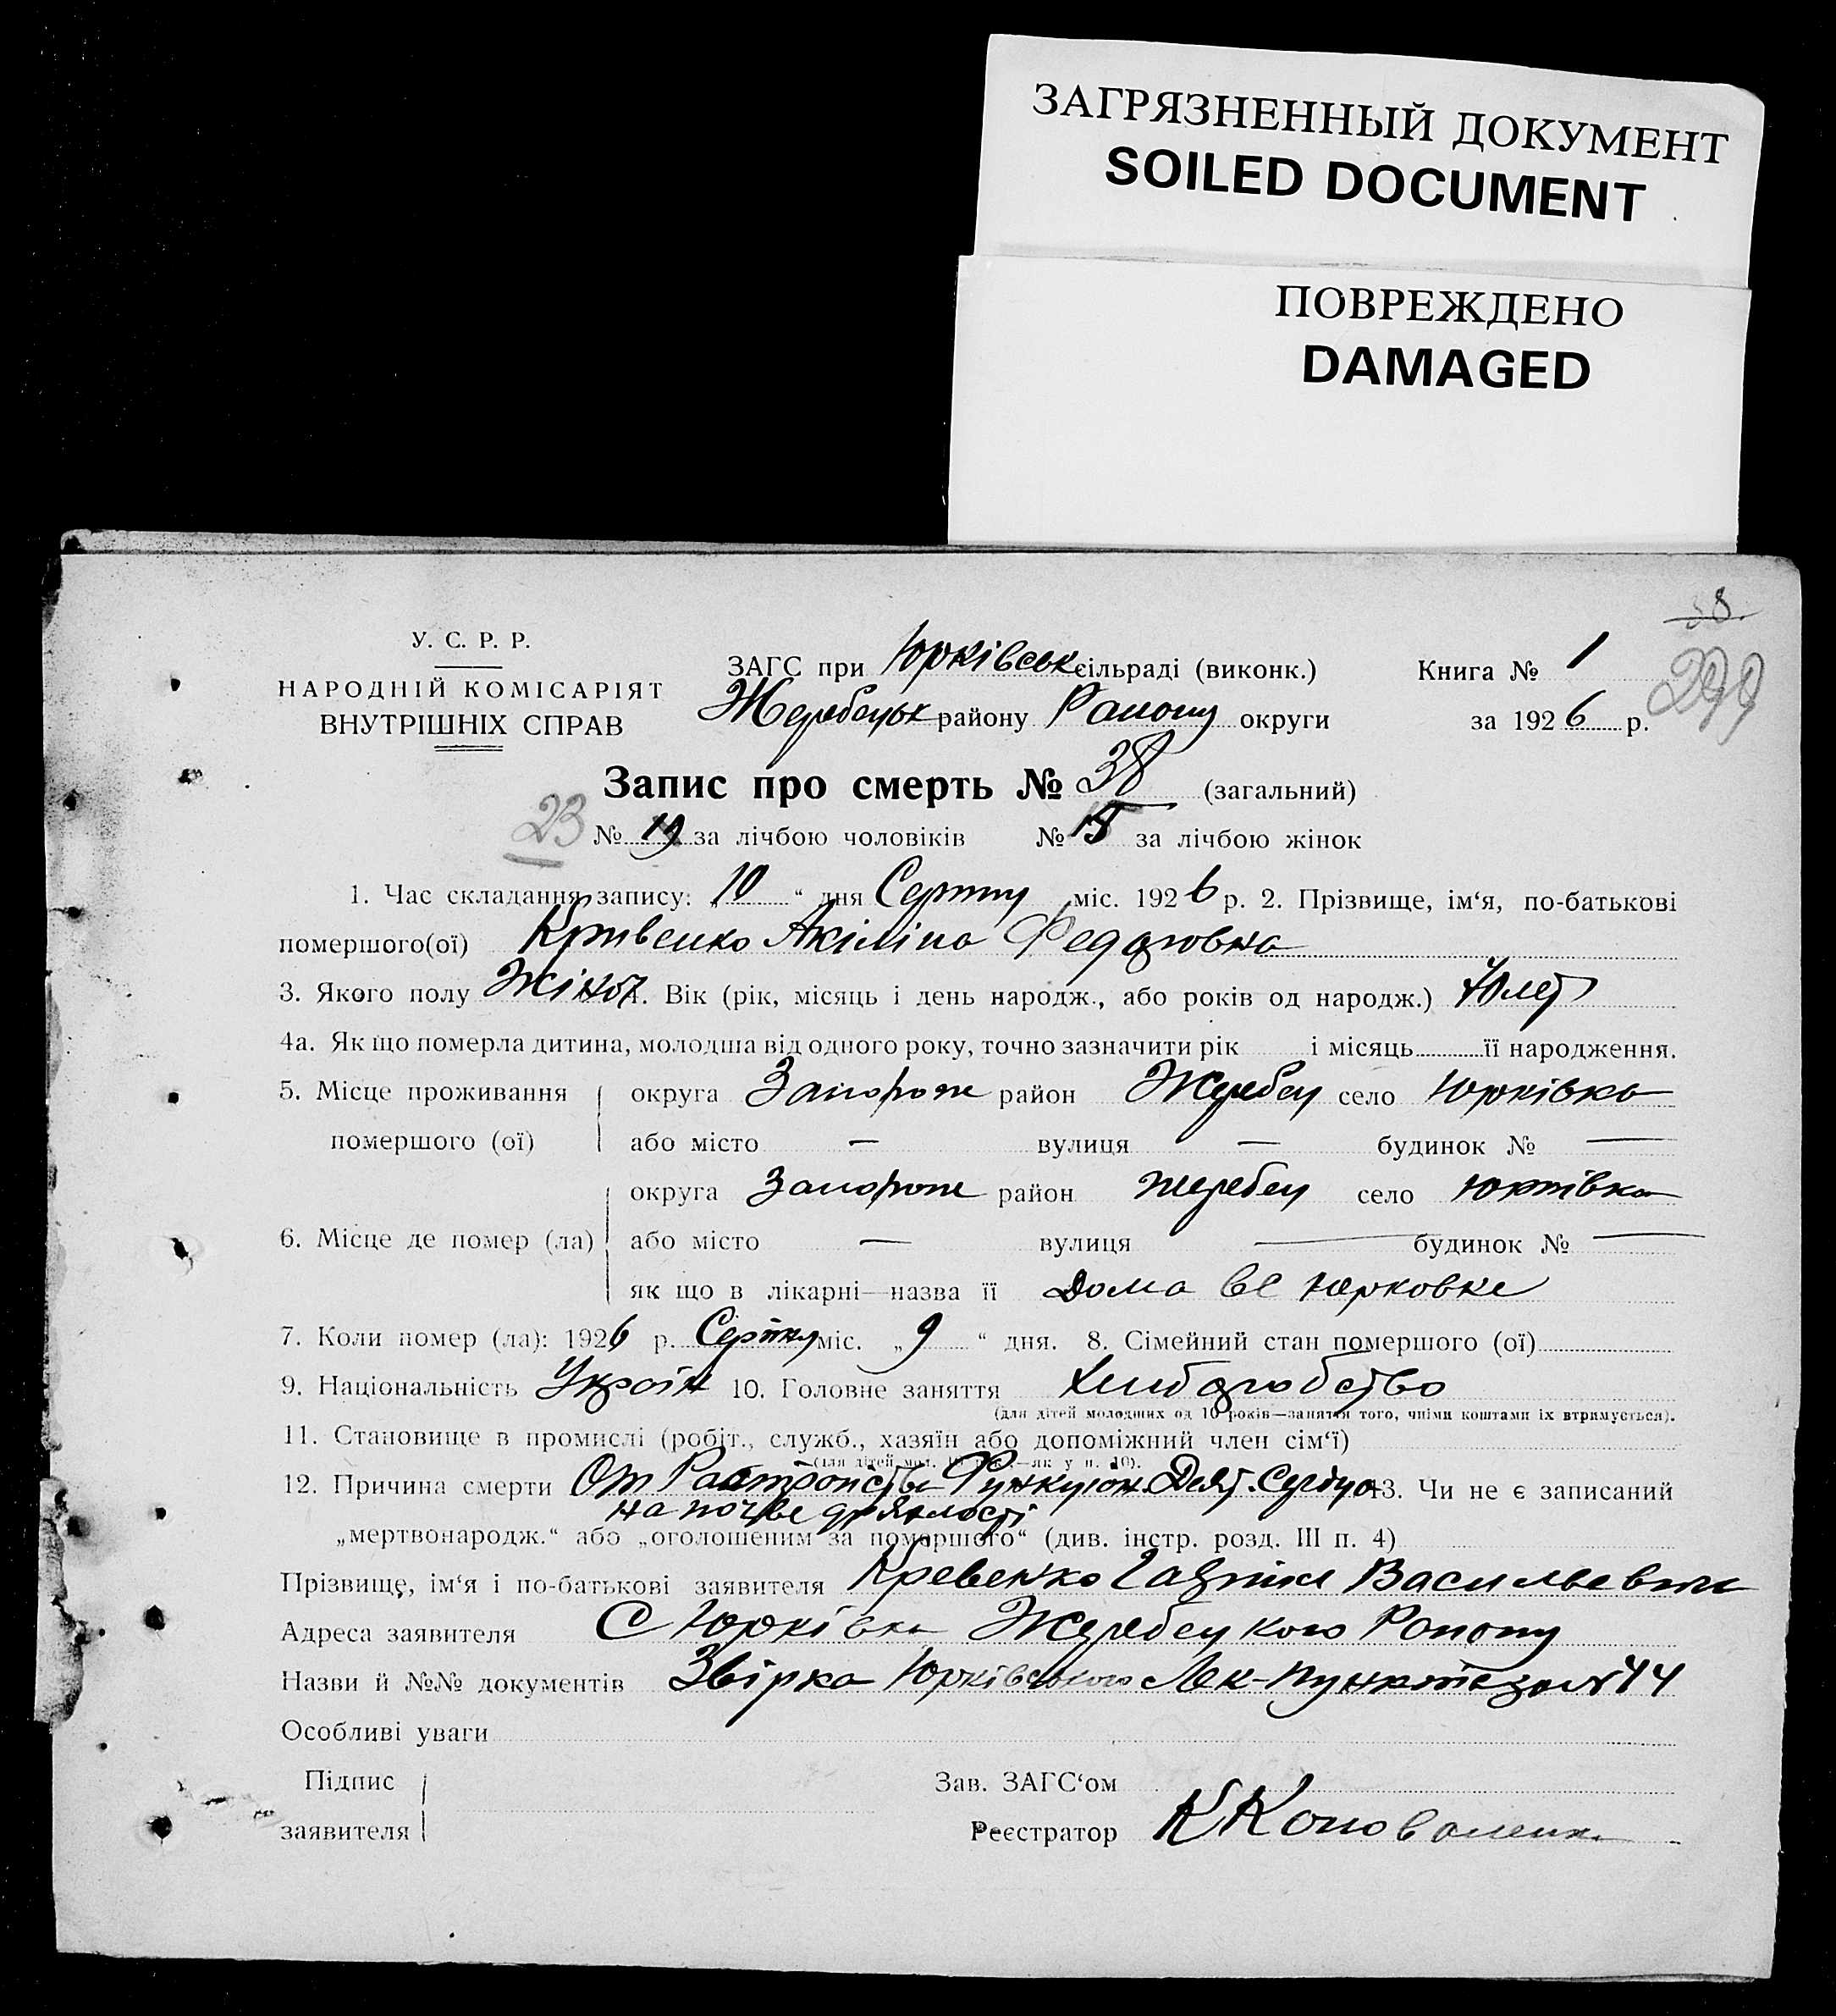 ЗАГРЯЗНЕННЫЙ ДОКУМЕНТ
SOILED DOCUMENT
ПОВРЕЖДЕНО
DAMAGED
38.
299
У. С. Р. Р.
НАРОДНІЙ КОМІСАРІЯТ
ВНУТРІШНІХ СПРАВ
ЗАГС при Юрківськ сільраді (виконк.) Книга № 1
Жеребецьк району округи за 1926 р.
Запис про смерть № 38 (загальний)
23 № 19 за лічбою чоловіків № 15 за лічбою жінок
1. Час складання запису: „10“ дня Серпну міс. 1926 р. 2. Прізвище, ім‘я, по-батькові
помершого(ої) Кривенко Акіліна Федоровна
3. Якого полу Жіноч 4. Вік (рік, місяць і день народж., або років од народж.) лет
4а. Як що померла дитина, молодша від одного року, точно зазначити рік і місяць її народження.
5. Місце проживання округа Запорож район Жеребец село Юрківка
помершого (ої) або місто — вулиця — будинок № —
округа Запорож район жеребец село Юрківка
6. Місце де помер (ла) або місто — вулиця — будинок № —
як що в лікарні—назва її Дома ве Юрковке
7. Коли помер (ла): 1926 р. Серпну міс. „9“ дня. 8. Сімейний стан помершого (ої)
9. Національність Україн 10. Головне заняття Хлиборобство
(для дітей молодших од 10 років—заняття того, чиїми коштами їх втримується).
11. Становище в промислі (робіт., служб., хазяїн або допоміжний член сім‘ї)
(для дітей мол. 10 рок.—як у п. 10).
12. Причина смерти От Растройства Функцион. Деят. Сердца 13. Чи не є записаний
на почве дряхлости
„мертвонародж.“ або „оголошеним за помершого“ (див. інстр. розд. III п. 4)
Прізвище, ім‘я і по-батькові заявителя Кревенко Васильевич
Адреса заявителя С Юрківка Жеребецкого Району
Назви й №№ документів Звірка Юрківського Лек-пункта за № 44
Особливі уваги
Підпис Зав. ЗАГС‘ом
заявителя Реєстратор К Коноваленко